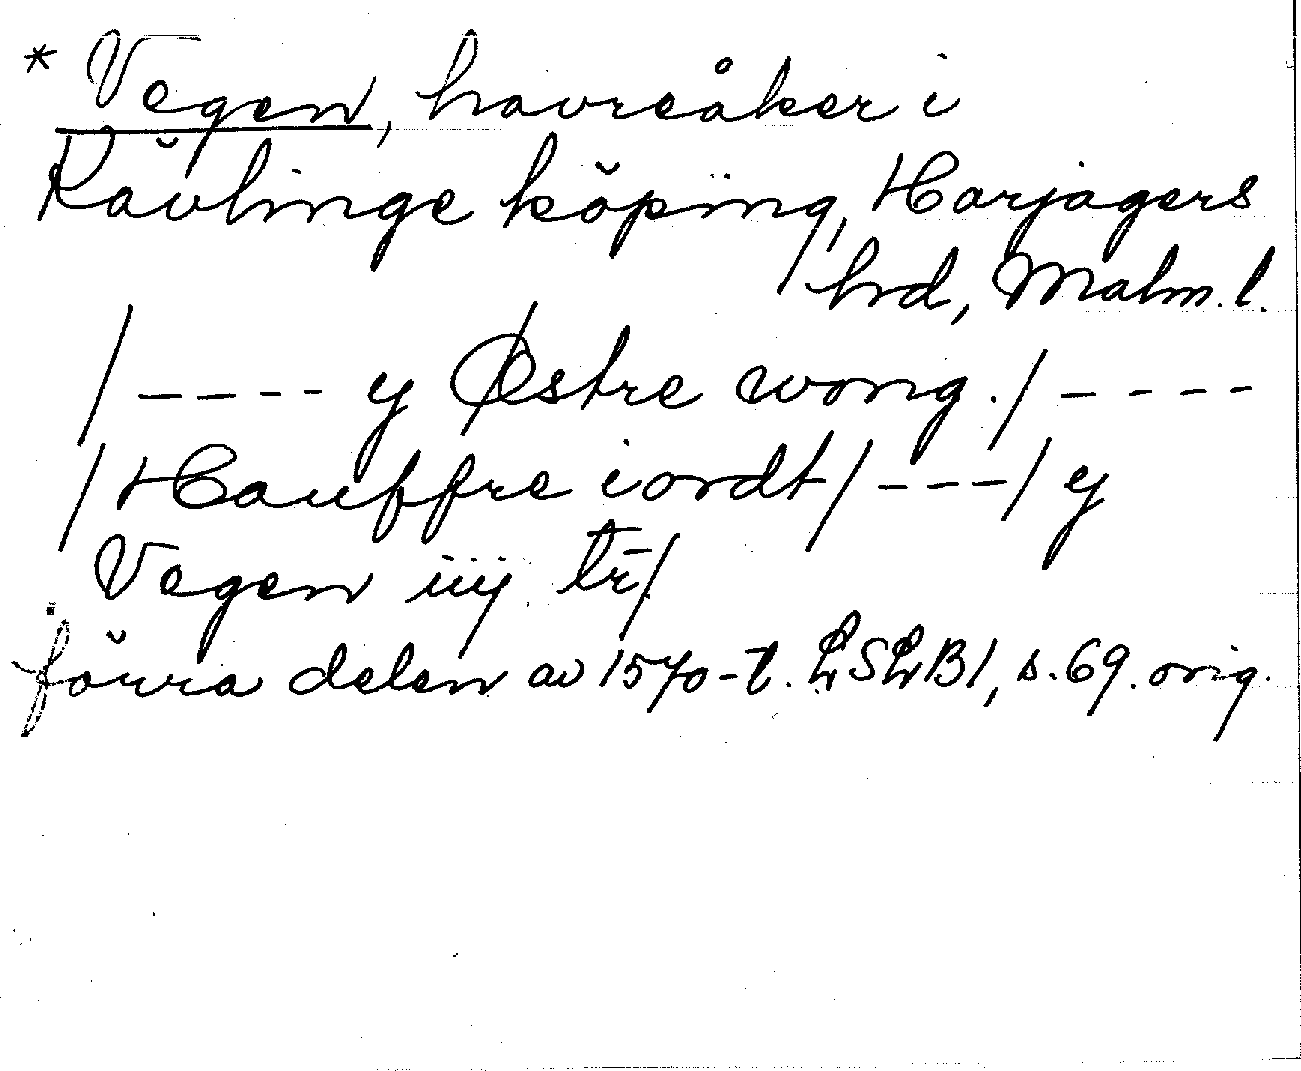 * Vegen, havreåker i
Kävlinge köping, Harjagers
hrd, Malm. l.
/ - - - - - y Østre wong. / - - - -
/ Hauffre iordt / - - - / y
Vegen iiij tr̄ /
förra delen av 1570-t. LSLB1, s. 69. orig.